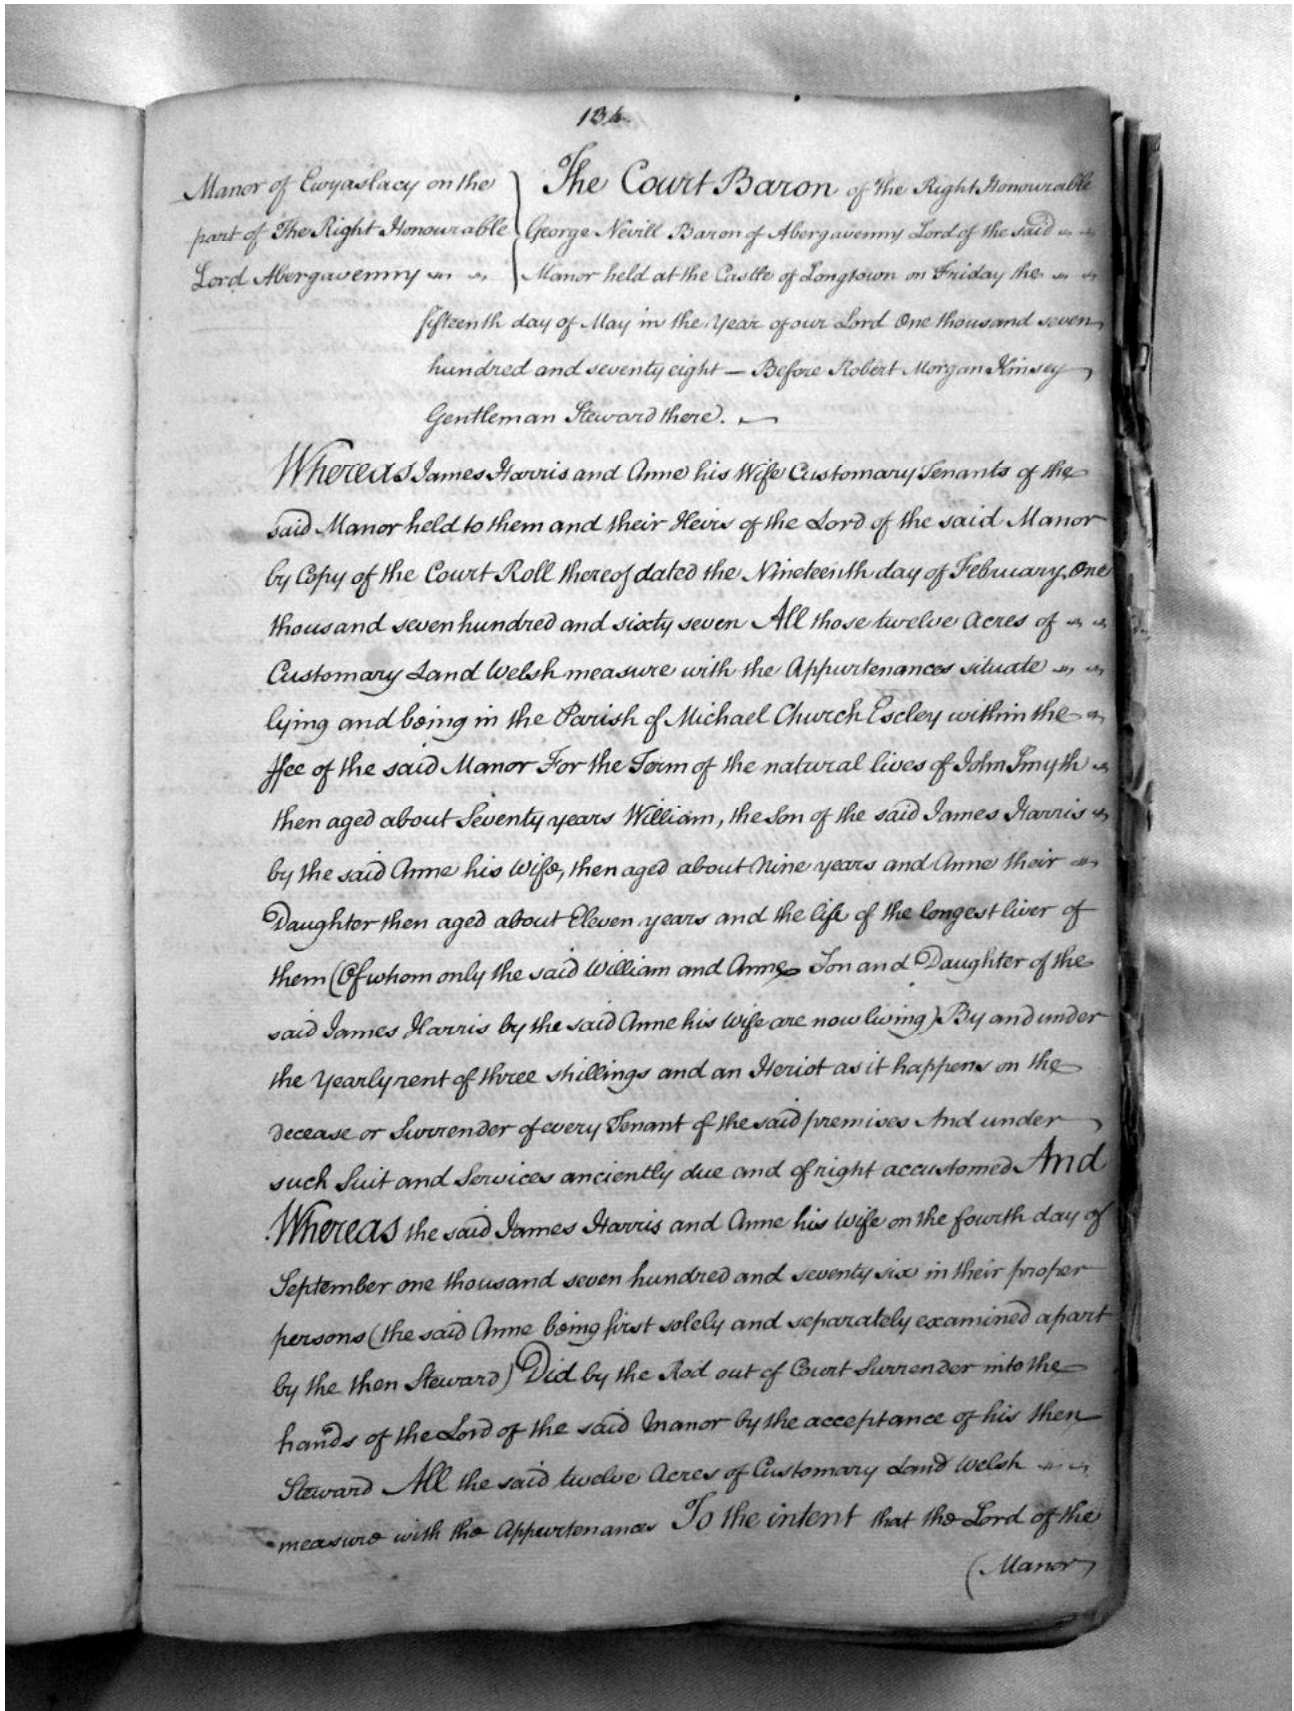 134
Manor of Ewyaslacy on the
part of The Right Honourable
Lord Abergavenny
The Court Baron of the Right Honourable
George Nevill Baron of Abergavenny Lord of the said
Manor held at the Castle of Longtown on Friday the
fifteenth day of May in the Year of our Lord One thousand seven
hundred and seventy eight — Before Robert Morgan Kinsey
Gentleman Steward there.
Whereas James Harris and Anne his Wife Customary Tenants of the
said Manor held to them and their Heirs of the Lord of the said Manor
by Copy of the Court Roll thereof dated the Nineteenth day of February One
thousand seven hundred and sixty seven All those twelve Acres of
Customary Land Welsh measure with the Appurtenances situate
lying and being in the Parish of Michael Church Escley within the
ffee of the said Manor For the Term of the natural lives of John Smyth
then aged about Seventy years William, the Son of the said James Harris
by the said Anne his Wife, then aged about Nine years and Anne their
Daughter then aged about Eleven years and the life of the longest liver of
them (Of whom only the said William and Anne Son and Daughter of the
said James Harris by the said Anne his Wife are now living) By and under
the Yearly rent of three shillings and an Heriot as it happens on the
decease or Surrender of every Tenant of the said premises And under
such Suit and Services anciently due and of right accustomed And
Whereas the said James Harris and Anne his Wife on the fourth day of
September one thousand seven hundred and seventy six in their proper
persons (the said Anne being first solely and separately examined apart
by the then Steward) Did by the Rod out of Court Surrender into the
hands of the Lord of the said Manor by the acceptance of his then
Steward All the said twelve Acres of Customary Land Welsh
measure with the Appurtenances To the intent that the Lord of the
(Manor